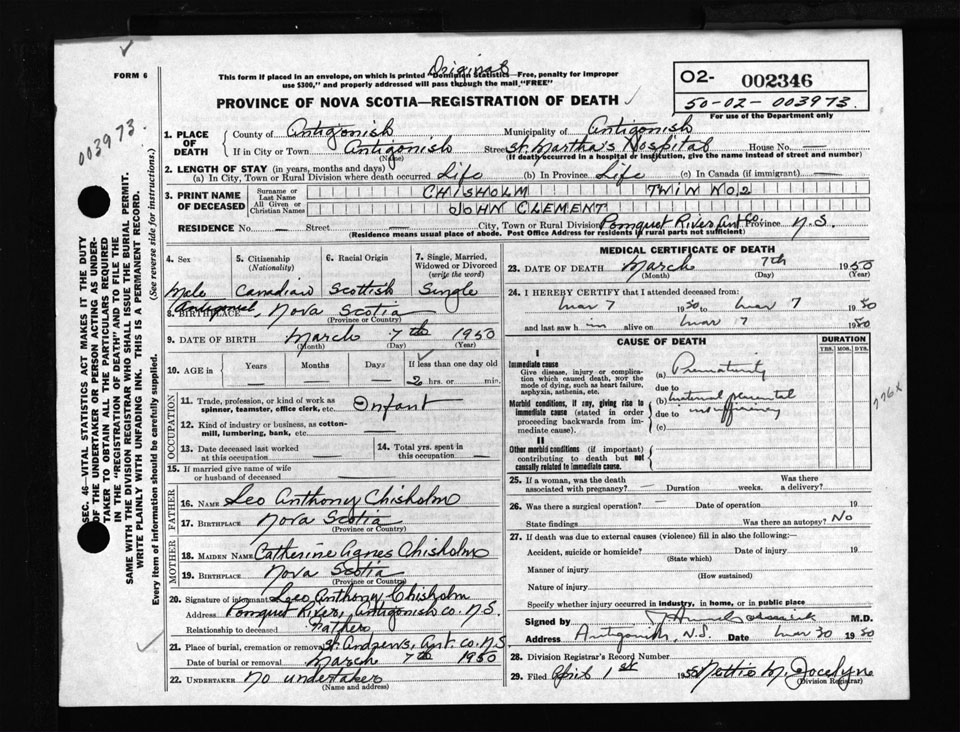 FORM 6
Original
This form if placed in an envelope, on which is printed "Dominion Statistics—Free, penalty for improper
use $300," and properly addressed will pass through the mail "FREE"
PROVINCE OF NOVA SCOTIA—REGISTRATION OF DEATH
O2- 002346
50-02-003973.
For use of the Department only
003973.
SEC. 46—VITAL STATISTICS ACT MAKES IT THE DUTY
OF THE UNDERTAKER OR PERSON ACTING AS UNDER-
TAKER TO OBTAIN ALL THE PARTICULARS REQUIRED
IN THE "REGISTRATION OF DEATH" AND TO FILE THE
SAME WITH THE DIVISION REGISTRAR WHO SHALL ISSUE THE BURIAL PERMIT.
WRITE PLAINLY WITH UNFADING INK. THIS IS A PERMANENT RECORD.
Every item of information should be carefully supplied. (See reverse side for instructions.)
1. PLACE OF DEATH
County of Antigonish Municipality of Antigonish
If in City or Town Antigonish Street St. Martha's Hospital House No. —
(Name) (If death occurred in a hospital or institution, give the name instead of street and number)
2. LENGTH OF STAY (in years, months and days)
(a) In City, Town or Rural Division where death occurred Life (b) In Province Life (c) In Canada (if immigrant) —
3. PRINT NAME OF DECEASED
Surname or Last Name CHISHOLM TWIN NO. 2
All Given or Christian Names JOHN CLEMENT
RESIDENCE No. — Street — City, Town or Rural Division Pomquet River Ant Co. Province N.S.
(Residence means usual place of abode. Post Office Address for residents in rural parts not sufficient)
4. Sex
Male
5. Citizenship
(Nationality)
Canadian
6. Racial Origin
Scottish
7. Single, Married,
Widowed or Divorced
(write the word)
Single
8. BIRTHPLACE Antigonish, Nova Scotia
(Province or Country)
9. DATE OF BIRTH March 7th 1950
(Month) (Day) (Year)
10. AGE in Years — Months — Days — If less than one day old
2 hrs. or min.
OCCUPATION
11. Trade, profession, or kind of work as
spinner, teamster, office clerk, etc. Infant
12. Kind of industry or business, as cotton-
mill, lumbering, bank, etc. —
13. Date deceased last worked
at this occupation —
14. Total yrs. spent in
this occupation —
15. If married give name of wife
or husband of deceased —
FATHER
16. NAME Leo Anthony Chisholm
17. BIRTHPLACE Nova Scotia
(Province or Country)
MOTHER
18. MAIDEN NAME Catherine Agnes Chisholm
19. BIRTHPLACE Nova Scotia
(Province or Country)
20. Signature of informant Leo Anthony Chisholm
Address Pomquet River, Antigonish Co. N.S.
Relationship to deceased Father
21. Place of burial, cremation or removal St. Andrews, Ant. Co. N.S.
Date of burial or removal March 7th 1950
22. UNDERTAKER No undertaker
(Name and address)
MEDICAL CERTIFICATE OF DEATH
23. DATE OF DEATH March 7th 1950
(Month) (Day) (Year)
24. I HEREBY CERTIFY that I attended deceased from
Mar 7 1950 to Mar 7 1950
and last saw him alive on Mar 7 1950
CAUSE OF DEATH
DURATION
YRS. MOS. DYS.
I
Immediate cause
Give disease, injury or complica-
tion which caused death, NOT the
mode of dying, such as heart failure,
asphyxia, asthenia, etc.
(a) Prematurity
due to
Morbid conditions, if any, giving rise to
immediate cause (stated in order
proceeding backwards from im-
mediate cause).
(b) maternal placental
due to insufficiency
(c)
776x
II
Other morbid conditions (if important)
contributing to death but not
causally related to immediate cause.
25. If a woman, was the death
associated with pregnancy? — Duration weeks. Was there
a delivery?
26. Was there a surgical operation? — Date of operation 19
State findings Was there an autopsy? No
27. If death was due to external causes (violence) fill in also the following:—
Accident, suicide or homicide? Date of injury 19
(State which)
Manner of injury
(How sustained)
Nature of injury
Specify whether injury occurred in industry, in home, or in public place
Signed by M.D.
Address Antigonish, N.S. Date Mar 30 1950
28. Division Registrar's Record Number
29. Filed April 1st 1950 Nettie M. Jocelyn
(Division Registrar)